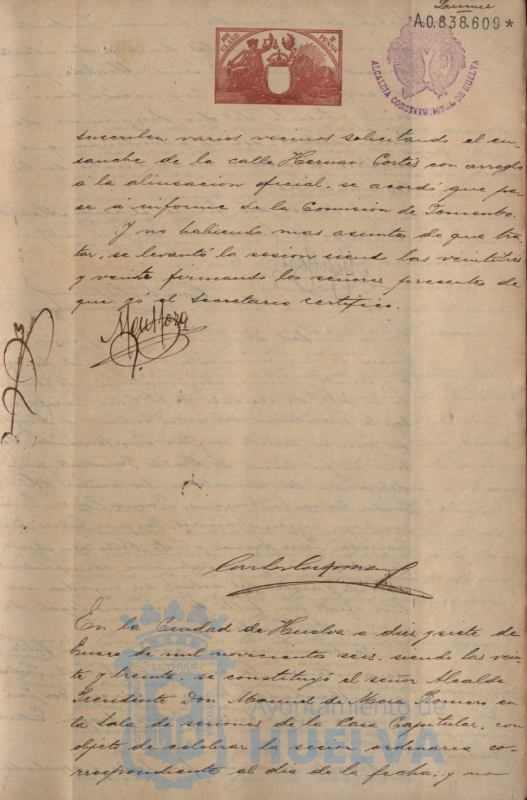 A.0.838.609*
CLASE
PESETAS
ALCALDIA CONSTITUCIONAL DE HUELVA
suscriben varios vecinos solicitando el en-
sanche de la calle Hernan Cortés con arreglo
á la alineacion oficial, se acordó que pa-
se a informe de la Comisión de Fomento.
Y no habiendo mas asuntos de que tra-
tar, se levantó la sesion siendo las veintitres
y veinte firmando los señores presentes de
que yó el Secretario certifico.
En la Ciudad de Huelva a diez y siete de
Enero de mil novecientos seis, siendo las vein-
te y treinta, se constituyó el señor Alcalde
Presidente Don Manuel de Mora Romero en
la Sala de sesiones de la Casa Capitular, con
objeto de celebrar la sesion ordinaria co-
rrespondiente al dia de la fecha; y no
Ayuntamiento de
HUELVA